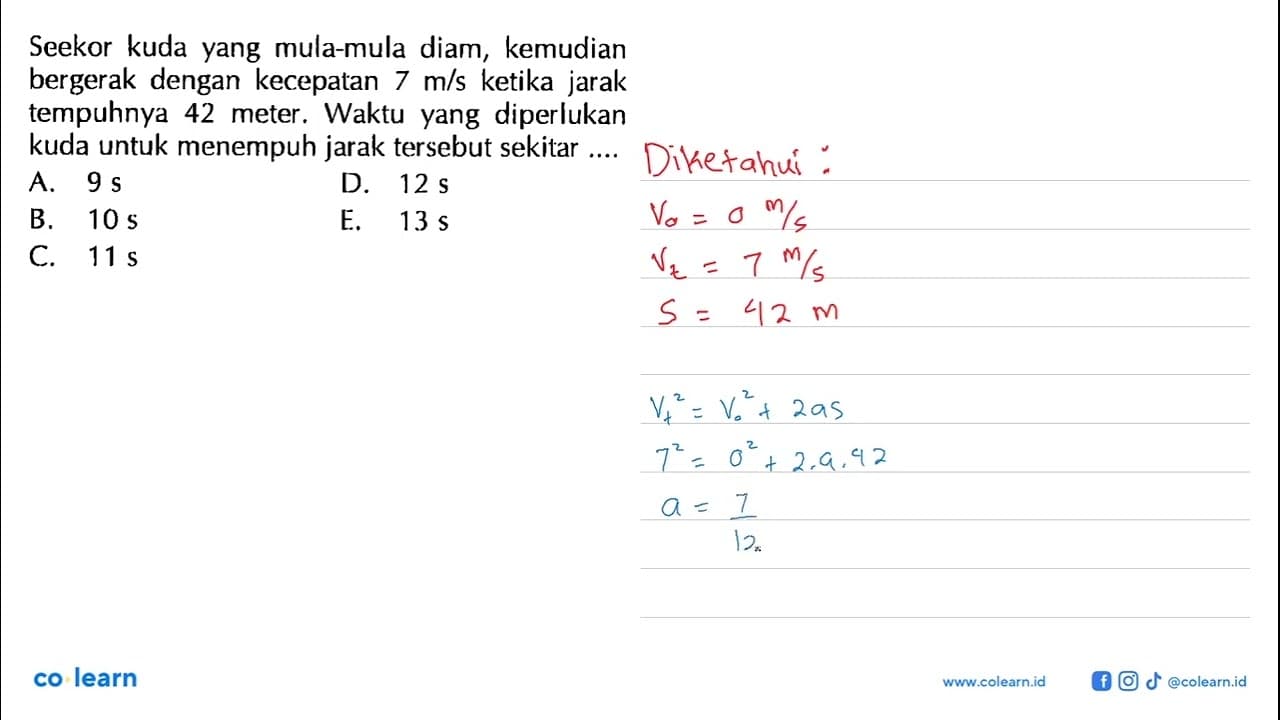 Seekor kuda yang mula-mula diam, kemudian
bergerak dengan kecepatan 7 m/s ketika jarak
tempuhnya 42 meter. Waktu yang diperlukan
kuda untuk menempuh jarak tersebut sekitar ....
A. 9 s D. 12 s
B. 10 s E. 13 s
C. 11 s
Diketahui :
V₀ = 0 m/s
Vₜ = 7 m/s
S = 42 m
Vₜ² = V₀² + 2as
7² = 0² + 2.a.42
a = 7
12
co learn
www.colearn.id
@colearn.id